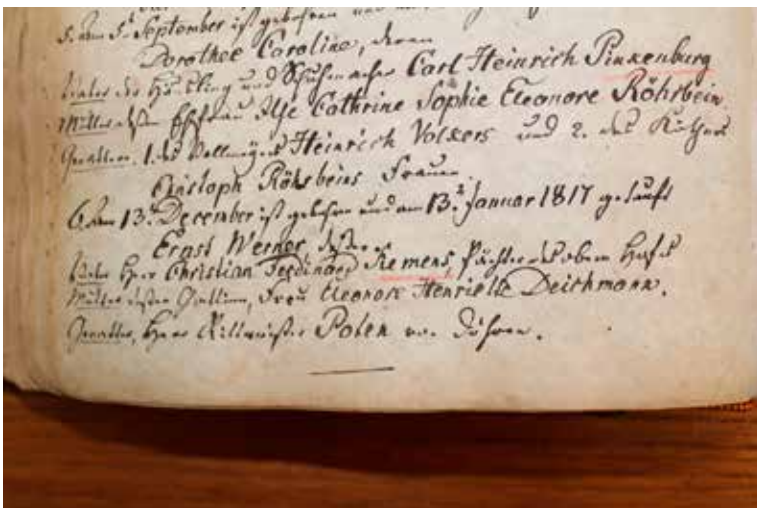 5. am 5t September ist gebohren und
Dorothee Caroline, deren
Vater der Häusling und Schuhmacher Carl Heinrich Pinkenburg
Mutter dessen Ehefrau Ilse Cathrine Sophie Eleonore Röhrbein
Gevattern, 1. des Vollmeyers Heinrich Volkers und 2. des Köthers
Christoph Röhrbeins Frauen.
6. am 13t December ist gebohren und am 13t Januar 1817 getauft
Ernst Werner, dessen
Vater Herr Christian Ferdinand Siemens, Pächter des obern Hofes
Mutter dessen Gattinn, Frau Eleonore Henriette Deichmann.
Gevatter, Herr Rittmeister Poten von